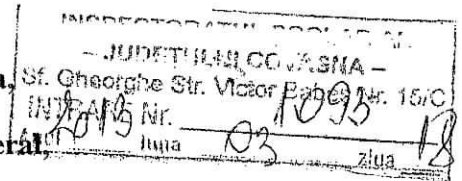 INSPECTORATUL ȘCOLAR AL
– JUDEŢULUI COVASNA –
Sf. Gheorghe Str. Victor Babeş Nr. 15/C
INTRARE Nr. 1093
Anul 2013 luna 03 ziua 18
eral,